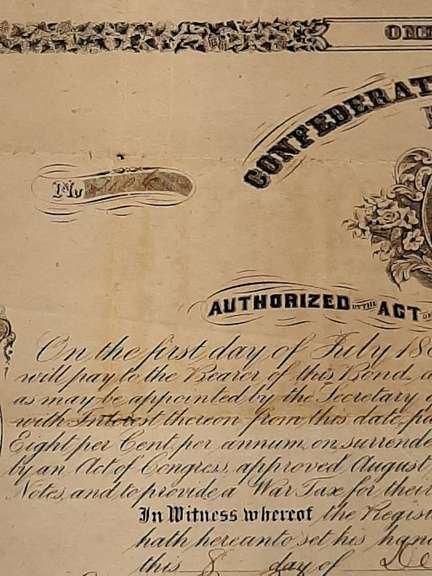 CONFEDERAT
No
AUTHORIZED BY THE ACT OF
On the first day of July 18
will pay to the Bearer of this Bond, a
as may be appointed by the Secretary
with Interest thereon from this date, pa
Eight per Cent. per annum, on surrende
by an Act of Congress, approved August
Notes, and to provide a War Tax for their
In Witness whereof the Regist
hath hereunto set his han
this 8 day of De